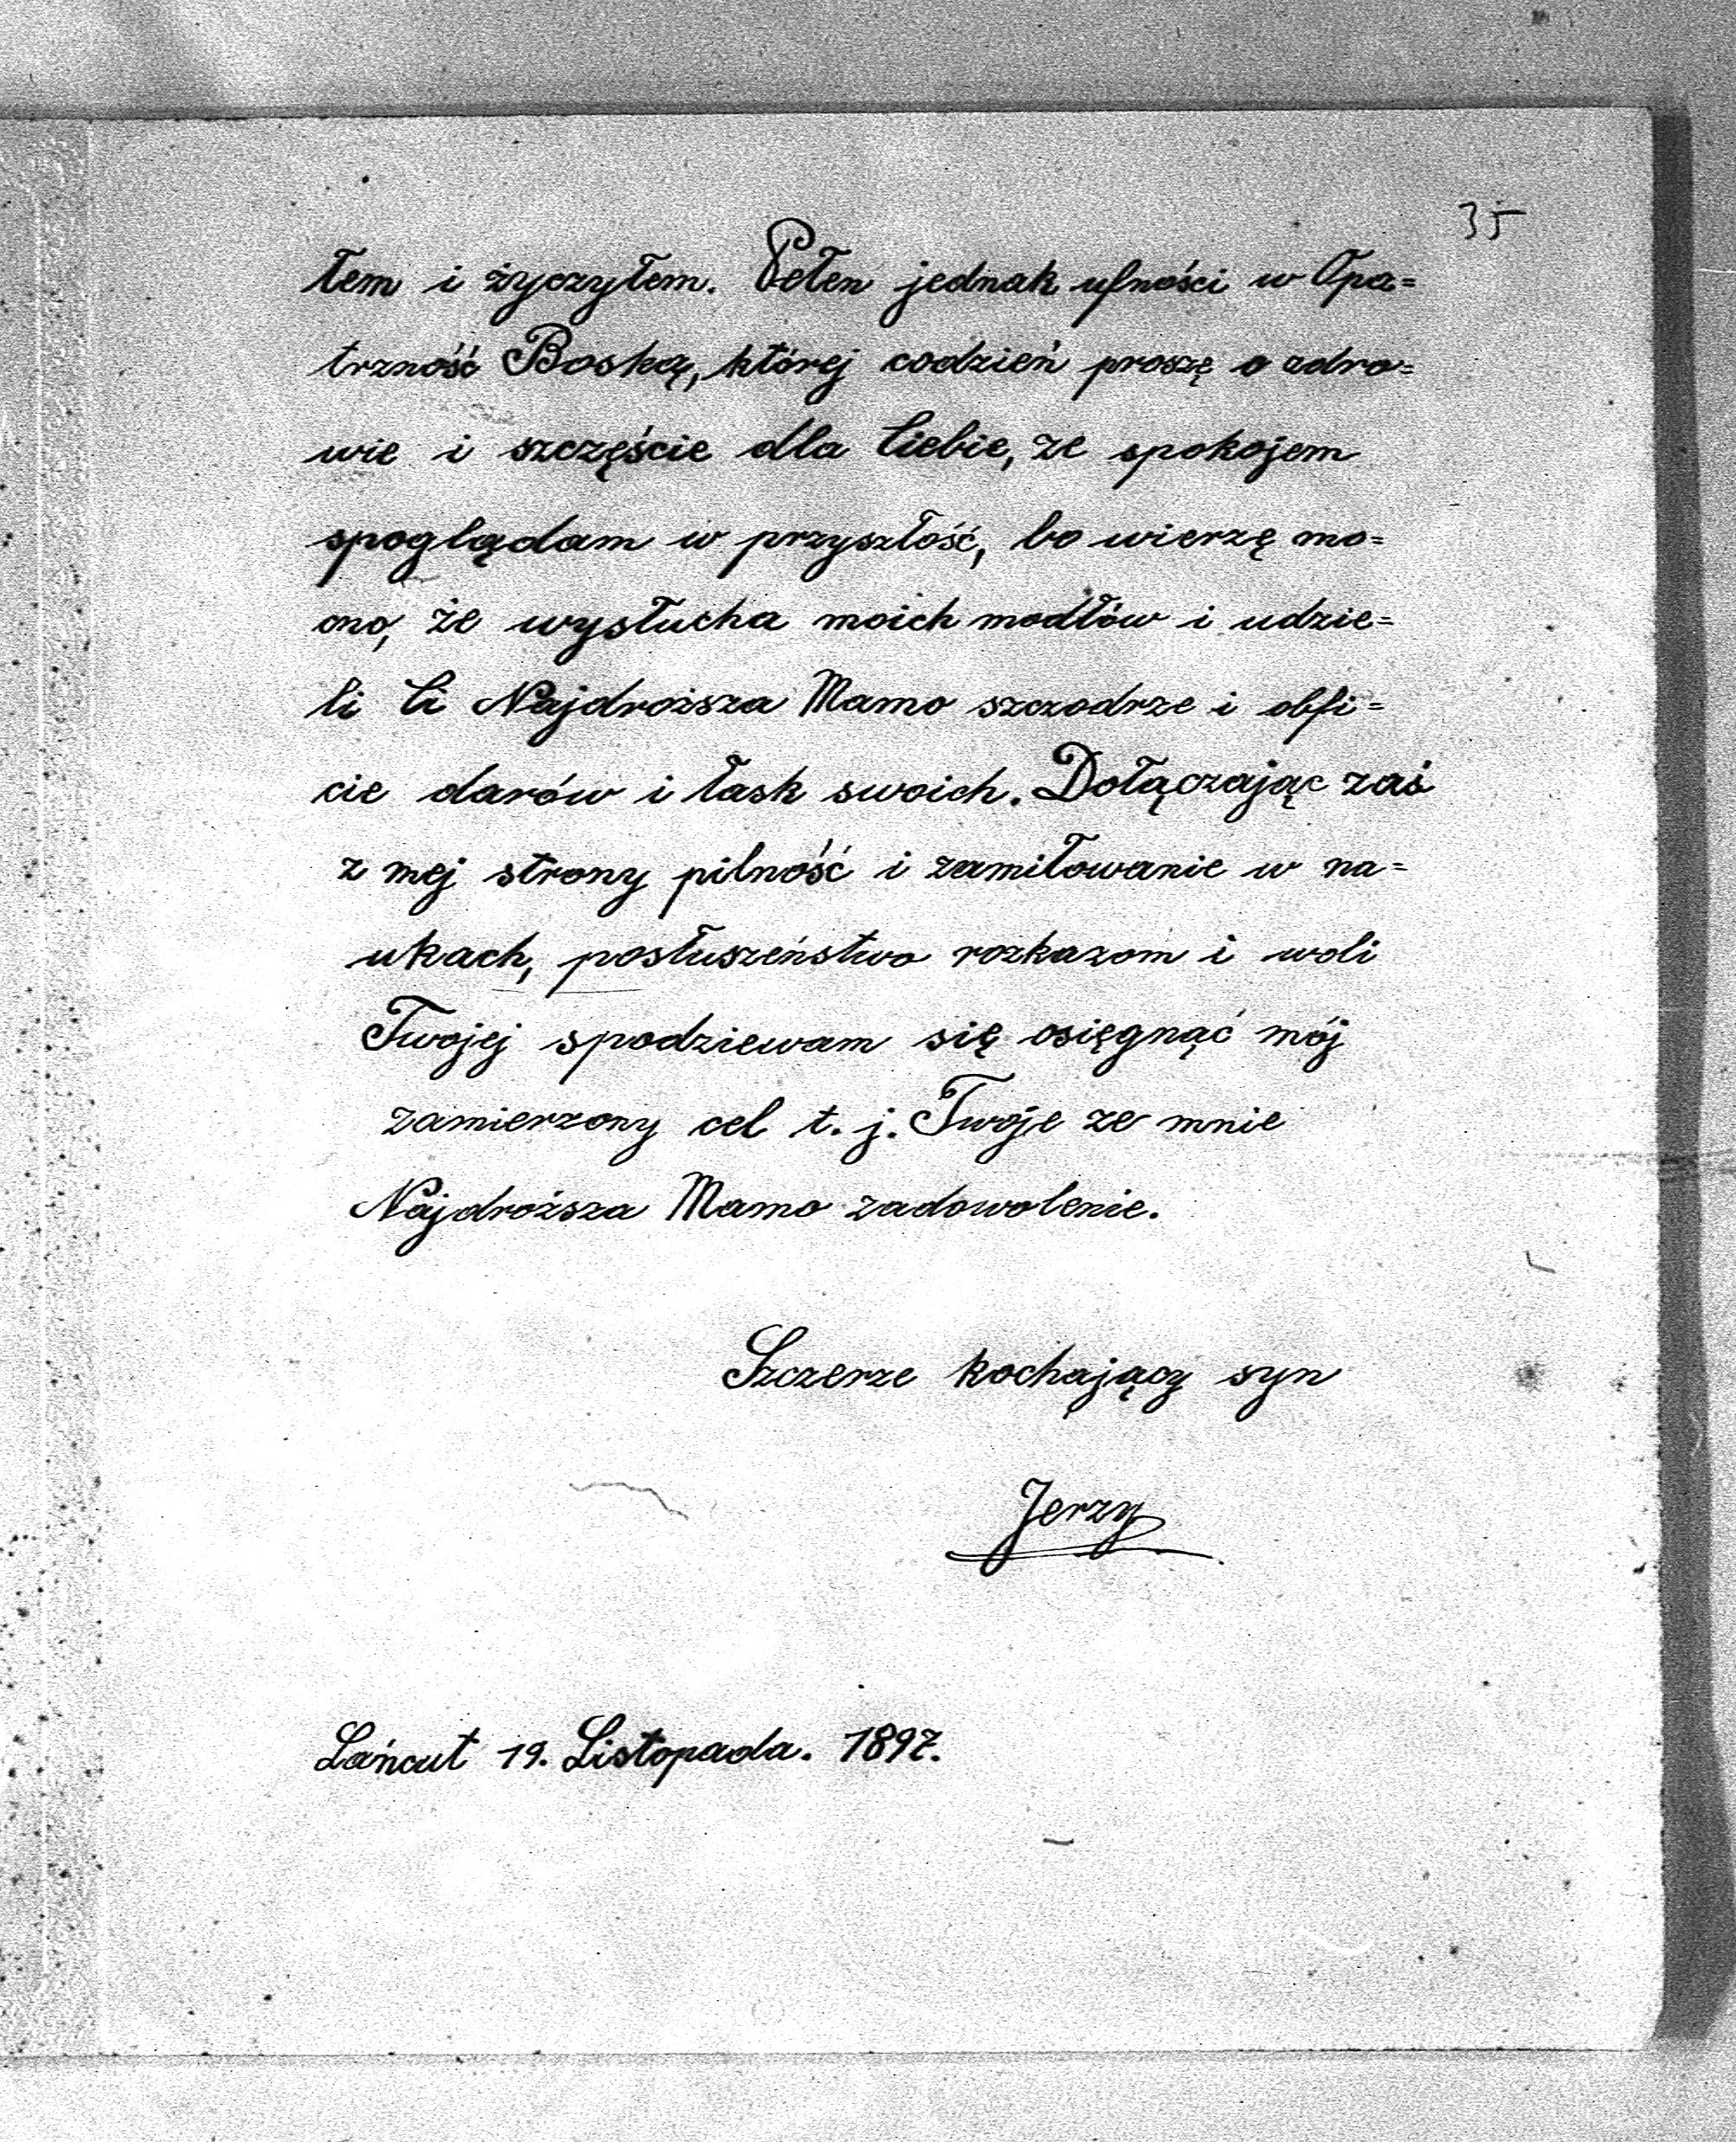 35
łem i życzyłem. Pełen jednak ufności w Opa=
trzność Boską, której codzień proszę o zdro=
wie i szczęście dla Ciebie, ze spokojem
spoglądam w przyszłość, bo wierzę mo=
cno, że wysłucha moich modłów i udzie=
li Ci Najdroższa Mamo szczodrze i obfi=
cie darów i łask swoich. Dołączając zaś
z mej strony pilność i zamiłowanie w na=
ukach, posłuszeństwo rozkazom i woli
Twojej spodziewam się osięgnąć mój
zamierzony cel t. j. Twoje ze mnie
Najdroższa Mamo zadowolenie.
Szczerze kochający syn
Jerzy
Łańcut 19. Listopada. 1897.